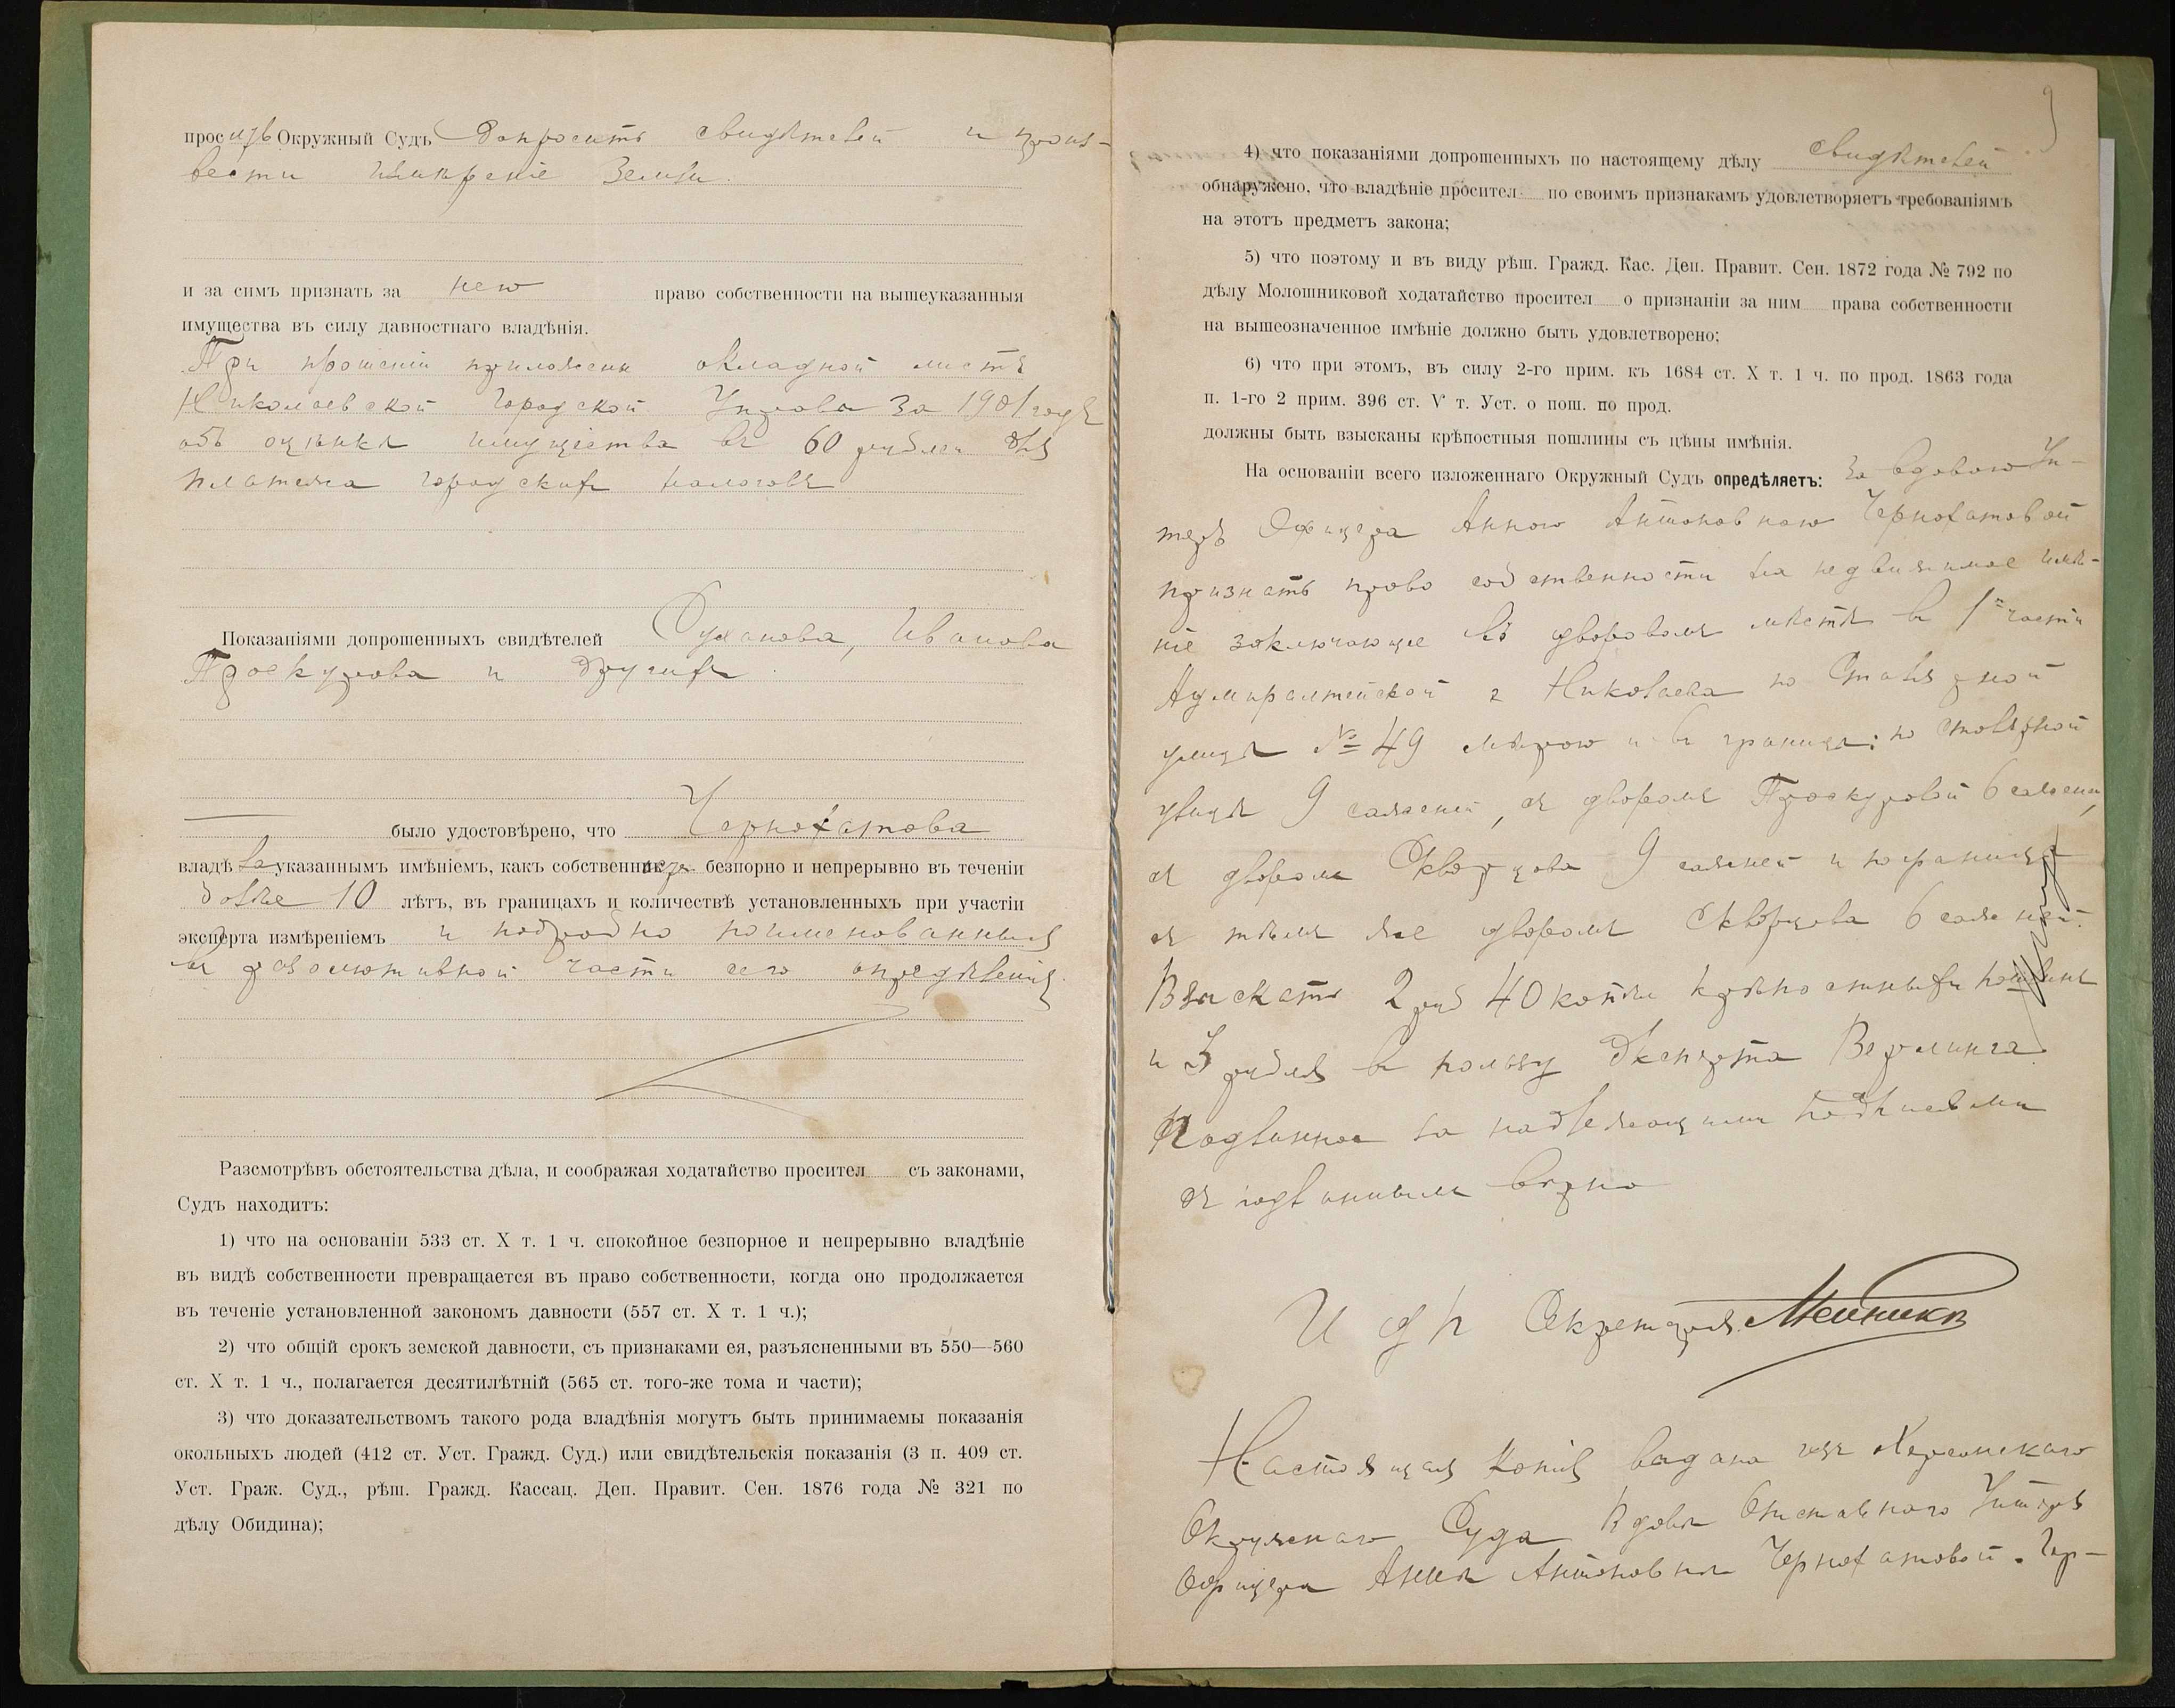 просить Окружный Судъ допросить свидѣтелей и произ-
вести измѣреніе земли.
и за симъ признать за нею право собственности на вышеуказанныя
имущества въ силу давностнаго владѣнія.
При прошеніи приложенъ окладной листъ
Николаевской Городской Управы за 1901 годъ
объ оцѣнкѣ имущества въ 60 рублей для
платежа городскихъ налоговъ
Показаніями допрошенныхъ свидѣтелей Суханова, Иванова
Проскурова и другихъ
было удостовѣрено, что Чернохатова
владѣла указаннымъ имѣніемъ, какъ собственница безпорно и непрерывно въ теченіи
болѣе 10 лѣтъ, въ границахъ и количествѣ установленныхъ при участіи
эксперта измѣреніемъ и подробно поименованныхъ
въ резолютивной части сего опредѣленія
Разсмотрѣвъ обстоятельства дѣла, и соображая ходатайство просител съ законами,
Судъ находитъ:
1) что на основаніи 533 ст. X т. 1 ч. спокойное безпорное и непрерывно владѣніе
въ видѣ собственности превращается въ право собственности, когда оно продолжается
въ теченіе установленной закономъ давности (557 ст. X т. 1 ч.);
2) что общій срокъ земской давности, съ признаками ея, разъясненными въ 550—560
ст. X т. 1 ч., полагается десятилѣтній (565 ст. того-же тома и части);
3) что доказательствомъ такого рода владѣнія могутъ быть принимаемы показанія
окольныхъ людей (412 ст. Уст. Гражд. Суд.) или свидѣтельскія показанія (3 п. 409 ст.
Уст. Граж. Суд., рѣш. Гражд. Кассац. Деп. Правит. Сен. 1876 года № 321 по
дѣлу Обидина);
9
4) что показаніями допрошенныхъ по настоящему дѣлу свидѣтелей
обнаружено, что владѣніе просител по своимъ признакамъ удовлетворяетъ требованіямъ
на этотъ предметъ закона;
5) что поэтому и въ виду рѣш. Гражд. Кас. Деп. Правит. Сен. 1872 года № 792 по
дѣлу Молошниковой ходатайство просител о признаніи за ним права собственности
на вышеозначенное имѣніе должно быть удовлетворено;
6) что при этомъ, въ силу 2-го прим. къ 1684 ст. X т. 1 ч. по прод. 1863 года
п. 1-го 2 прим. 396 ст. V т. Уст. о пош. по прод.
должны быть взысканы крѣпостныя пошлины съ цѣны имѣнія.
На основаніи всего изложеннаго Окружный Судъ опредѣляетъ: За вдовою Ун-
теръ Офицера Анною Антоновною Чернохатовой
признать право собственности на недвижимое имѣ-
ніе заключающее въ дворовомъ мѣстѣ въ 1й части
Адмиралтейской г Николаева по Столярной
улицѣ № 49 мѣрою и въ границѣ: по Столярной
улицѣ 9 саженей, съ дворомъ Проскуровой 6 сажени,
съ дворомъ Скворцова 9 саженей и по границѣ
съ тѣмъ же дворомъ Скворцова 6 саженей.
Взыскать 2 руб 40 копѣе крѣпостныхъ пошлинъ
и 3 рубля въ пользу эксперта Верминга.
Подлинное за надлежащими подписями
Съ подлиннымъ вѣрно
И д п Секретаря
Настоящая копія выдана изъ Херсонскаго
Окружнаго Суда вдовѣ Отставного Унтеръ
Офицера Аннѣ Антоновнѣ Чернохатовой. Гер-